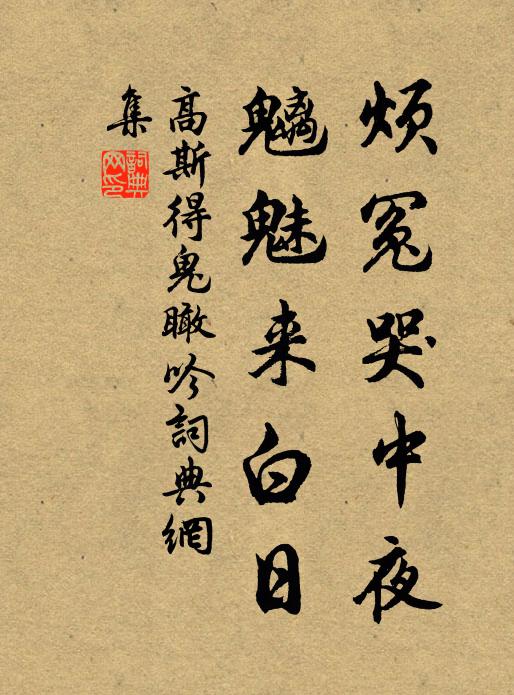 煩冤哭中夜
魑魅来白日
高斯得鬼瞰吟詞典網
集
詞典網印